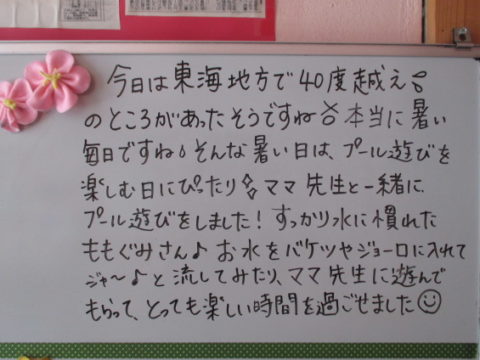 今日は東海地方で40度越え
のところがあったそうですね 本当に暑い
毎日ですね。そんな暑い日は、プール遊びを
楽しむ日にぴったり ママ先生と一緒に
プール遊びをしました！すっかり水に慣れた
ももぐみさん♪お水をバケツやジョーロに入れて
ジャ〜♪と流してみたり、ママ先生に遊んで
もらって、とっても楽しい時間を過ごせました☺